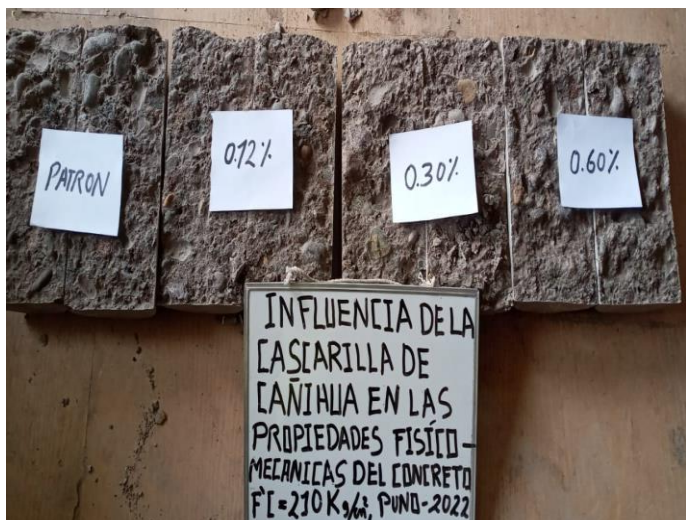 PATRON
0.12%
0.30%
0.60%
INFLUENCIA DE LA
CASCARILLA DE
CAÑIHUA EN LAS
PROPIEDADES FISÍCO-
MECANICAS DEL CONCRETO
F'C=210 Kg/cm², PUNO-2022